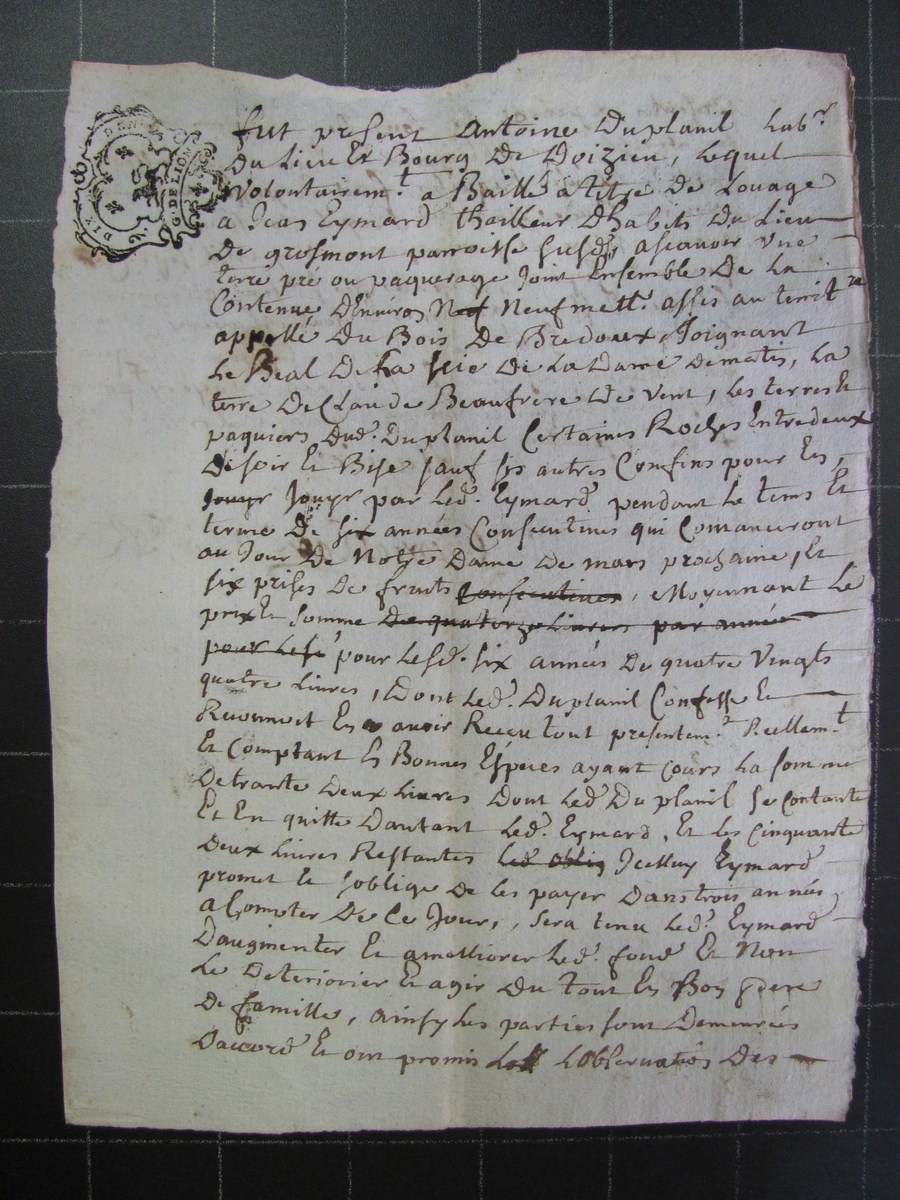 DIX DEN
G. DE LION
fut present Antoine Duplanil Lab.r
Du Lieu Et Bourg De Doizieu, Lequel
volontairem.t a Baillé a titre de Louage
a Jean Eymard thailleur Dhabits Du Lieu
De grosmont parroisse susd. ascavoir une
terre pré ou paquerage Joint Ensemble De La
Contenue D'Environ Neuf mett.s assis au territ.re
appellé Du Bois De Bredoux, Joignant
Le Beal De La scie De La Dame Dematis, La
terre De Claude Beaufrere De vent, les terres Et
paquiers Dud. Duplanil Certaines Roches Entredeux
De soir Et Bise sauf ses autres Confins pour En
Jouyr Jouyr par Led. Eymard pendant Le tems Et
terme De six années Consecutives qui Comanceront
au Jour De Notre Dame De mars prochaine, Et
six prises De fruits Consecutives, Moyennant Le
prix Et somme De quatorze Livres par année
pour Lesd. six années De quatre vingts
quatre Livres, Dont Led. Duplanil Confesse Et
Reconnoit En avoir Receu tout presentem.t Reellem.t
Et Comptant En Bonnes Espèces ayant Cours La somme
De trante Deux Livres Dont Led. Duplanil se Contante
Et En quitte Dautant Led. Eymard, Et les Cinquante
Deux Livres Restantes Led oblig Jcelluy Eymard
promet Et soblige De les payer Dans trois années
a Compter De Ce Jour, sera tenu Led. Eymard
Daugmenter Et ameilliorer Led. fond Et Non
Le Deteriorier Et agir Du tout En Bon pere
De famille, ainsy Les parties sont Demeurées
Daccord Et ont promis Lobservation Des